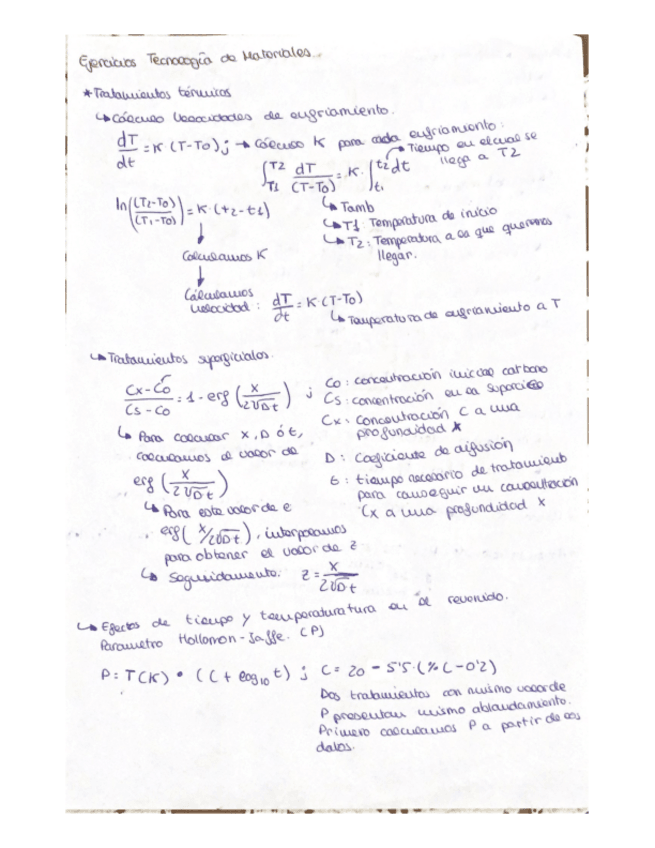 Ejercicios Tecnología de Materiales.
*Tratamientos térmicos
↳ Cálculo velocidades de enfriamiento.
dT/dt = K (T-To); → Cálculo K para cada enfriamiento:
∫T1 T2 dT/(T-To) = K · ∫t1 t2 dt → Tiempo en el cual se llega a T2
ln((T2-To)/(T1-To)) = K · (t2-t1)
↳ Tamb
↳ T1: Temperatura de inicio
↳ T2: Temperatura a la que queremos
llegar.
↓
Calculamos K
↓
Cálculamos
velocidad: dT/dt = K · (T-To)
↳ Temperatura de enfriamiento a T
↳ Tratamientos superficiales.
(Cx - Co)/(Cs - Co) = 1 - erf (x/2√Dt) ;
Co: concentración inicial carbono
Cs: concentración en la superficie
Cx: Concentración C a una
profundidad x
D: Coeficiente de difusión
t: tiempo necesario de tratamiento
para conseguir un concentración
Cx a una profundidad x
↳ Para calcular x, D ó t,
calculamos el valor de
erf (x/2√Dt)
↳ Para este valor de e
erf( x/2√Dt ), interpolamos
para obtener el valor de z
↳ Seguidamente: z = x/2√Dt
↳ Efectos de tiempo y temperaturatura en el revenido.
Parametro Hollomon-Jaffe. (P)
P = T(K) • (C + log10 t) ; C = 20 - 5'5 · (% C - 0'2)
Dos tratamientos con mismo valor de
P presentan mismo ablandamiento.
Primero calculamos P a partir de los
datos.